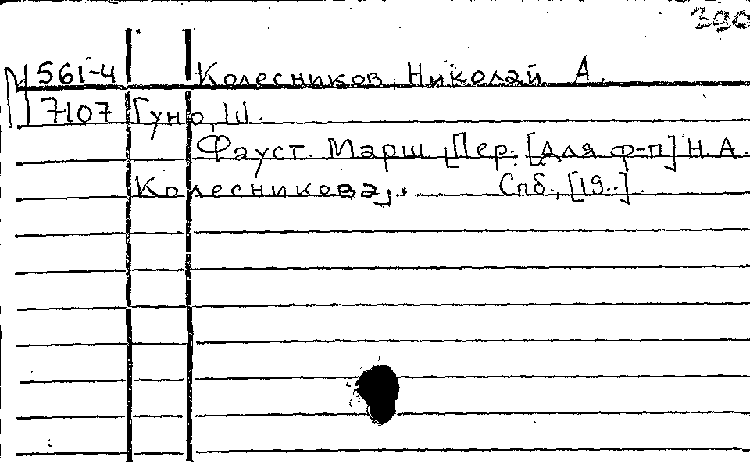 390
М 561-4 Колесников Николай А.
7107 Гуно, Ш.
Фауст. Марш. Пер. [для ф-п] Н.А.
Колесникова,. Спб, [19..]